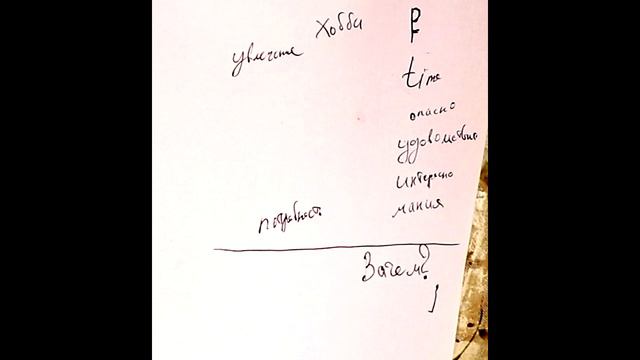 Хобби
увлечение
time
опасно
удовольствие
интересно
мания
потребность
Зачем?